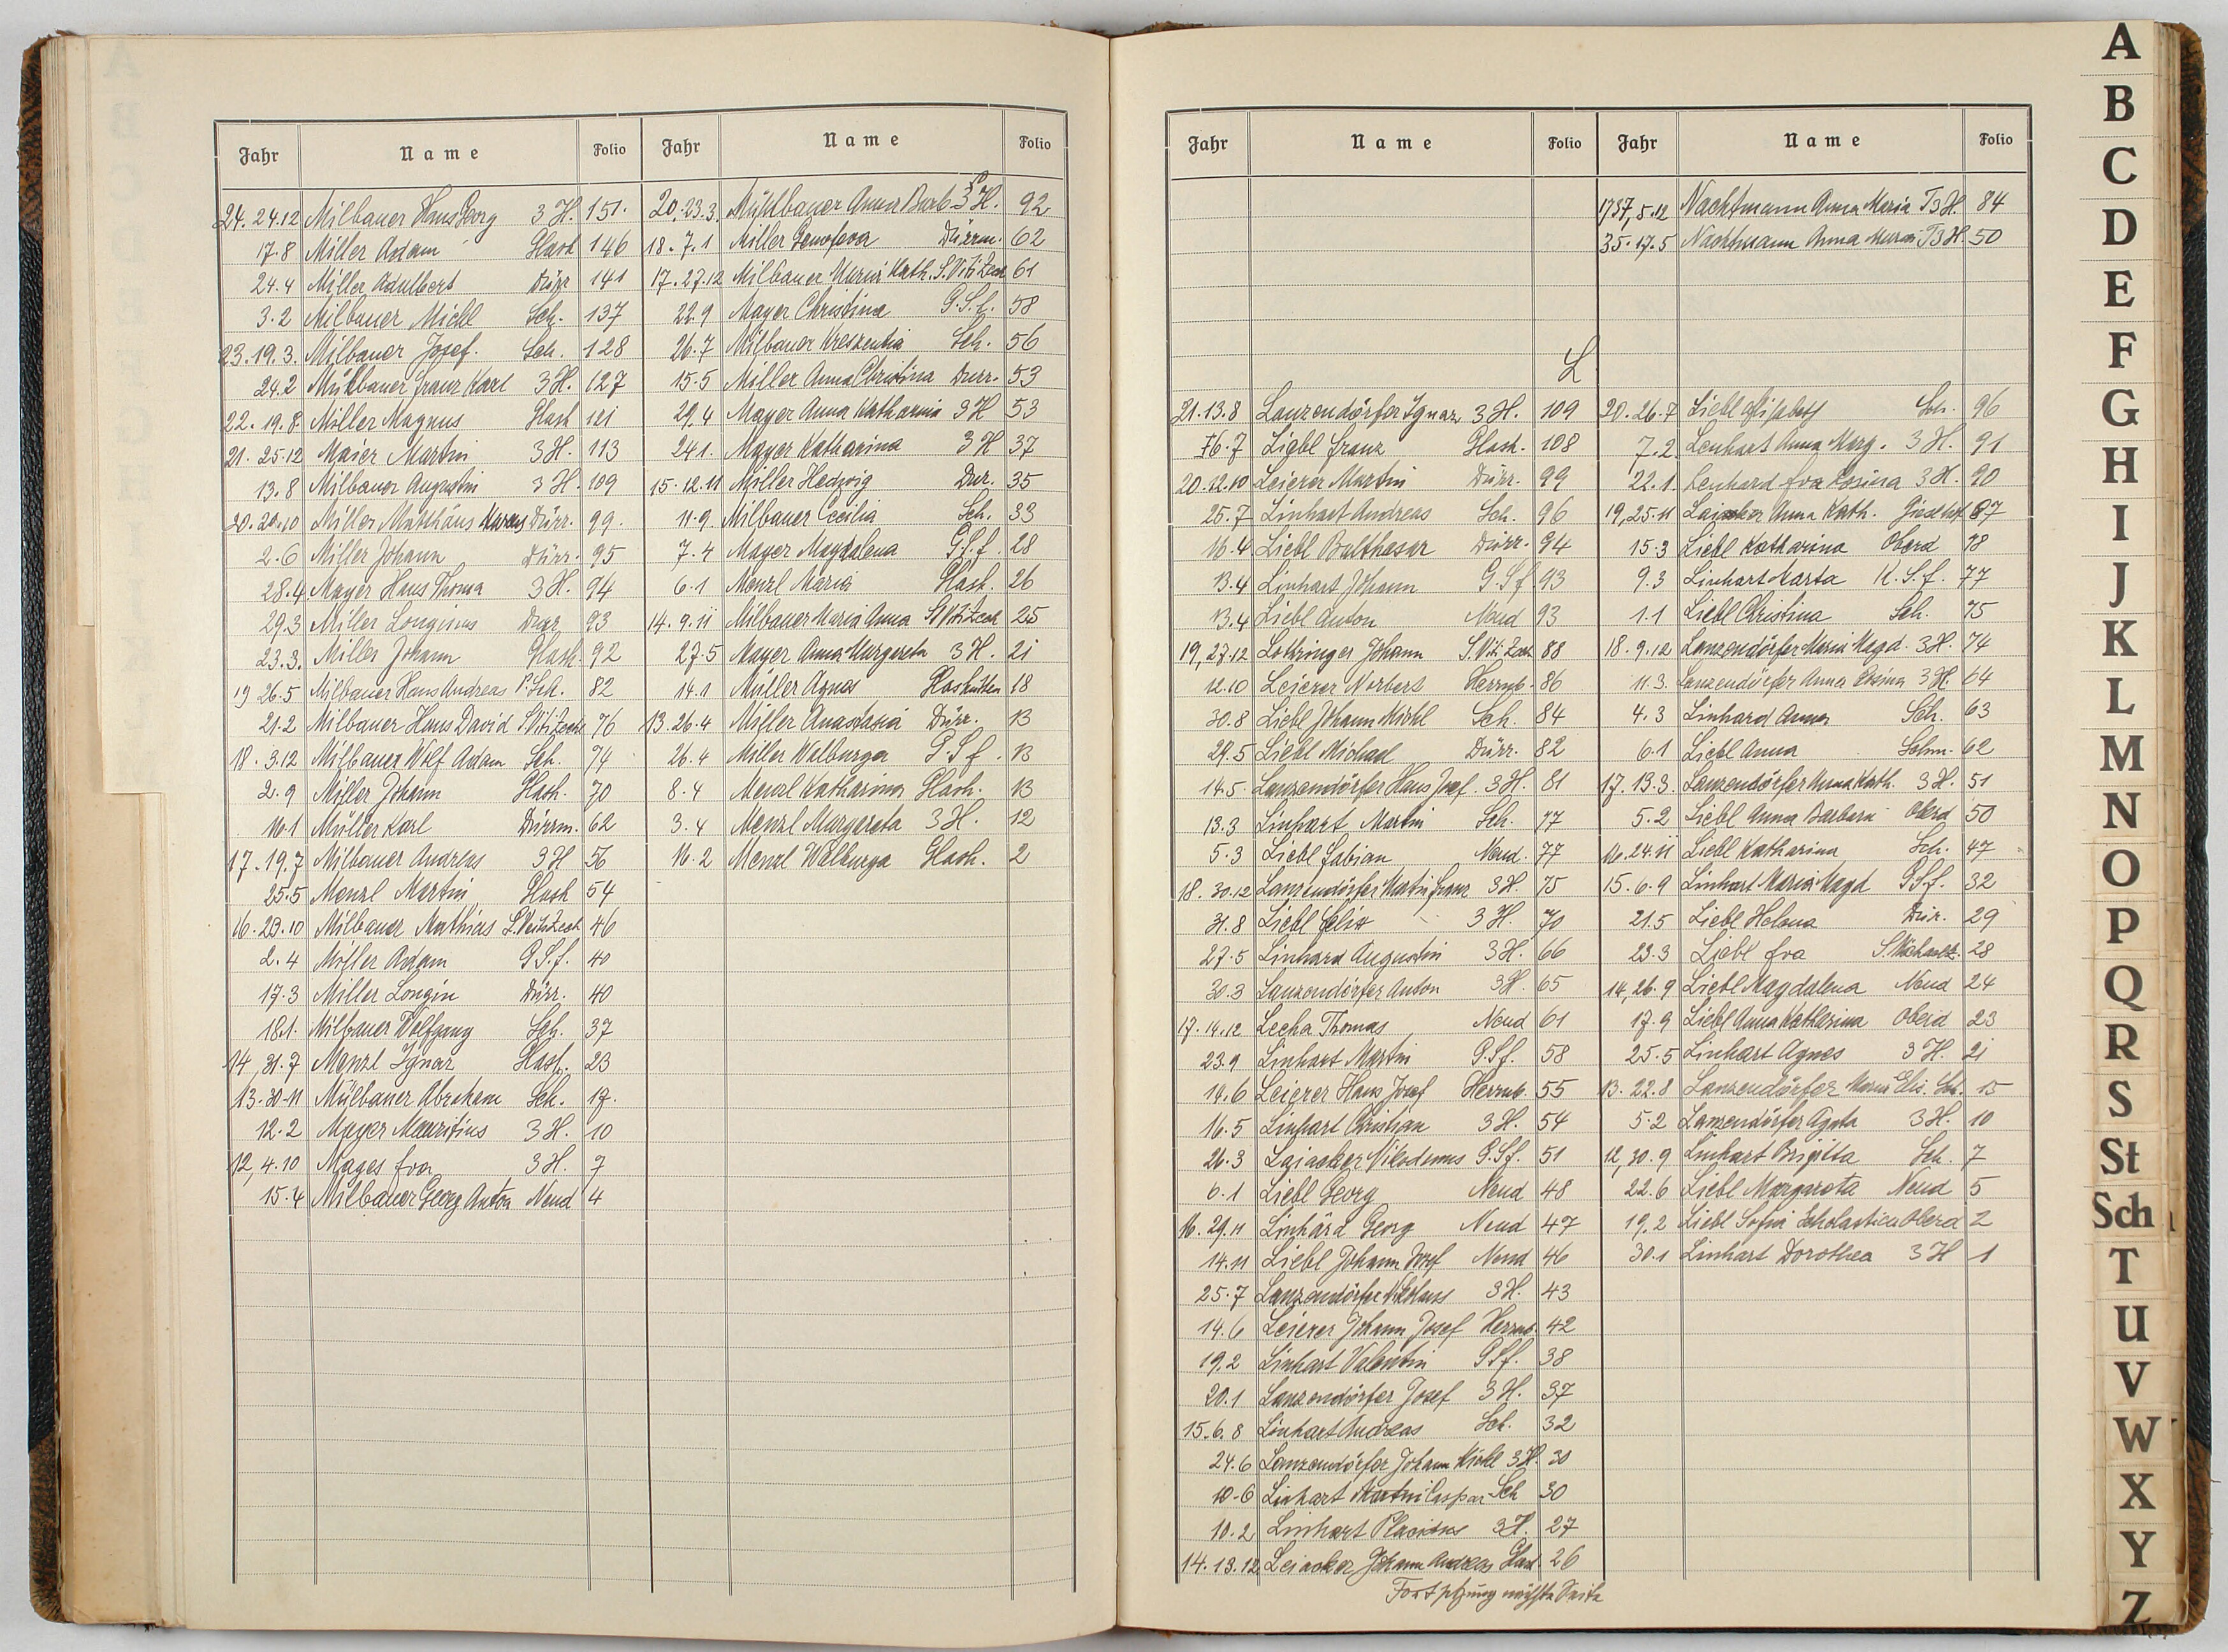 Jahr Name Folio Jahr Name Folio
24. 24.12 Milbauer Hans Georg 3 H. 151.
17.8 Miller Adam Glash 146
24.4 Miller Adalbert Dürr 141
3.2 Milbauer Michl Sch. 137
23. 19.3. Milbauer Josef. Sch. 128
24.2 Mühlbauer Franz Karl 3 H. 127
22. 19.8. Miller Magnus Glash 121
21. 25.12 Maier Martin 3 H. 113
13.8 Milbauer Augustin 3 H. 109
20. 20.10 Miller Matthäus Dürr. 99.
2.6 Miller Johann Dürr. 95
28.4. Mayer Hans Thoma 3 H. 94
29.3 Miller Longinus Dürr 93
23.3. Miller Johann Glash. 92
19 26.5 Milbauer Hans Andreas Sch. 82
21.2 Milbauer Hans David S. Viti Zech 76
18. 3.12 Milbauer Wolf Adam Sch. 74
2.9 Miller Johann Glash. 70
16.1 Müller Karl Dürrm. 62
17. 19.7 Milbauer Andreas 3 H 56
25.5 Menzl Martin Glash 54
16. 29.10 Milbauer Mathias S. Veit Zech 46
2.4 Miller Adam G.S.f. 40
17.3 Miller Longin Dürr. 40
18.1. Milbauer Wolfgang Sch. 37
14, 31.7 Menzl Ignaz Glash. 23
13. 30.11 Mülbauer Abraham Sch. 17.
12.2 Mayer Mauritius 3 H. 10
12, 4.10 Mages Eva 3 H. 7
15.4 Milbauer Georg Anton Neud 4
20. 23.3. Mühlbauer Anna Barb 3 H. 92
18. 7.1 Miller Genofeva Dürrm. 62
17. 27.12 Milbauer Maria Kath. S. Viti Zech 61
22.9 Mayer Christina G.S.f. 58
26.7 Milbauer Kreszentia Sch. 56
15.5 Miller Anna Christina Dürr. 53
29.4 Mayer Anna Katharina 3 H 53
24.1. Mayer Katharina 3 H 37
15. 12.11 Miller Hedwig Dür. 35
11.9 Milbauer Cecilia Sch. 33
7.4 Mayer Magdalena G.S.f. 28
6.1 Menzl Maria Glash. 26
14. 9.11 Milbauer Maria Anna St Viti Zech 25
27.5 Mayer Anna Margareta 3 H. 21
14.1 Müller Agnes Glashütten 18
13. 26.4 Miller Anastasia Dürr. 13
26.4 Miller Walburga G.S.f. 13
8.4 Menzl Katharina Glash. 13
3.4 Menzl Margareta 3 H. 12
16.2 Menzl Walburga Glash. 2
Jahr Name Folio Jahr Name Folio
1737, 5.12 Nachtmann Anna Maria T3H. 84
35. 17.5 Nachtmann Anna Maria T3H. 50
L
21. 13.8 Lanzendörfer Ignaz 3 H. 109
16.7 Liebl Franz Glash. 108
20. 12.10 Leierer Martin Dürr. 99
25.7 Linhart Andreas Sch. 96
16.4 Liebl Balthasar Dürr. 94
13.4 Linhart Johann G.S.f. 93
13.4 Liebl Anton Neud 93
19, 27.12 Lottringer Johann S. Viti Zech 88
12.10 Leierer Norbert Herrnb. 86
30.8 Liebl Johann Michl Sch. 84
29.5 Liebl Michael Dürr. 82
14.5. Lanzendörfer Hans Josef. 3 H. 81
13.3 Linhart Martin Sch. 77
5.3 Liebl Fabian Neud. 77
18. 30.12 Lanzendörfer Martin Franz 3 H. 75
31.8 Liebl Felix 3 H 70
27.5 Linhard Augustin 3 H. 66
30.3 Lanzendörfer Anton 3 H. 65
17. 14.12 Lecha Thomas Neud 61
23.9 Linhart Martin G.S.f. 58
19.6 Leierer Hans Josef Herrnb. 55
16.5 Linhart Christian 3 H. 54
26.3 Laiacker Nikodemus G.S.f. 51
6.1 Liebl Georg Neud 48
16. 29.11 Linhárd Georg Neud 47
14.11 Liebl Johann Josef Neud 46
25.7 Lanzendörfer Nikolaus 3 H. 43
14.6 Leierer Johann Josef Herrnb. 42
19.2 Linhart Valentin G.S.f. 38
20.1 Lanzendörfer Josef 3 H. 37
15. 6.8 Linhart Andreas Sch. 32
24.6 Lanzendörfer Johann Michl 3 H. 30
10.6 Linhart Martin Caspar Sch 30
10.2 Linhart Placidus 3 H. 27
14. 13.12 Leiacker Johann Andreas Glash 26
Fortsetzung nächste Seite
20. 26.7 Liebl Elisabeth Sch. 96
7.2. Lenhart Anna Marg. 3 H. 91
22.1. Lenhard Eva Rosina 3 H. 90
19, 25.11 Laiacker Anna Kath. 87
15.3 Liebl Katharina Oberd 78
9.3 Linhart Marta K.S.f. 77
1.1 Liebl Christina Sch. 75
18. 9.12 Lanzendörfer Maria Magd. 3 H. 74
11.3. Lanzendörfer Anna Rosina 3 H. 64
4.3 Linhard Anna Sch. 63
6.1 Liebl Anna 62
17. 13.3. Lanzendörfer Anna Kath. 3 H. 51
5.2 Liebl Anna Barbara Oberd 50
16. 24.11 Liebl Katharina Sch. 47
15. 6.9 Linhart Maria Magd G.S.f. 32
21.5 Liebl Helena Dür. 29
23.3 Liebl Eva 28
14, 26.9 Liebl Magdalena Neud 24
17.9 Liebl Anna Katharina Oberd 23
25.5 Linhart Agnes 3 H. 21
13. 22.8 Lanzendörfer Maria Elis. Sch. 15
5.2 Lanzendörfer Agata 3 H. 10
12, 30.9 Linhart Brigitta Sch. 7
22.6 Liebl Margareta Neud 5
19.2 Liebl Sofia Scholastica Oberd 2
30.1 Linhart Dorothea 3 H 1
A
B
C
D
E
F
G
H
I
J
K
L
M
N
O
P
Q
R
S
St
Sch
T
U
V
W
X
Y
Z